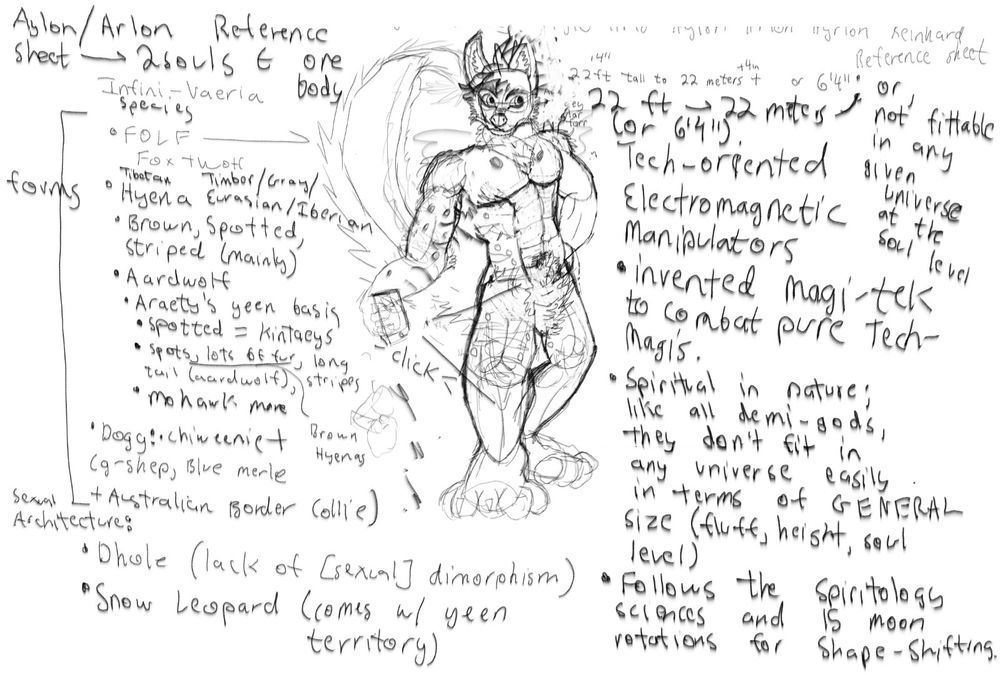 Aylon/Arlon Reference
sheet → 2 souls E one
body
Infini-Vaeria
species
forms
• FOLF
Fox + wolf
Tibetan Timber/Gray/
Eurasian/Iberian
• Hyena
• Brown, Spotted,
striped (mainly)
• Aardwolf
• Araety's yeen basis
• spotted = Kintaeys
• spots, lots of fur, long
tail (aardwolf), stripes
• mohawk mane
Brown
Hyenas
• Dogg: chiweenie +
(g-shep, Blue merle
+ Australian Border Collie)
Sexual
Architecture:
• Dhole (lack of [sexual] dimorphism)
• Snow Leopard (comes w/ yeen
territory)
click
Reinhard
Reference sheet
14"
22ft tall to 22 meters + or 6'4"
22 ft → 22 meters
(or 6'4")
or,
not fittable
in any
given
universe
at the
soul level
Tech-oriented
Electromagnetic
Manipulators
• invented magi-tek
to combat pure Tech-
Magis.
• Spiritual in nature;
like all demi-gods,
they don't fit in
any universe easily
in terms of GENERAL
size (fluff, height, soul
level)
• Follows the spiritology
sciences and 15 moon
rotations for shape-shifting.